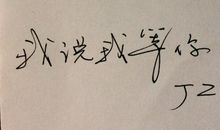 我说我等你
JZ